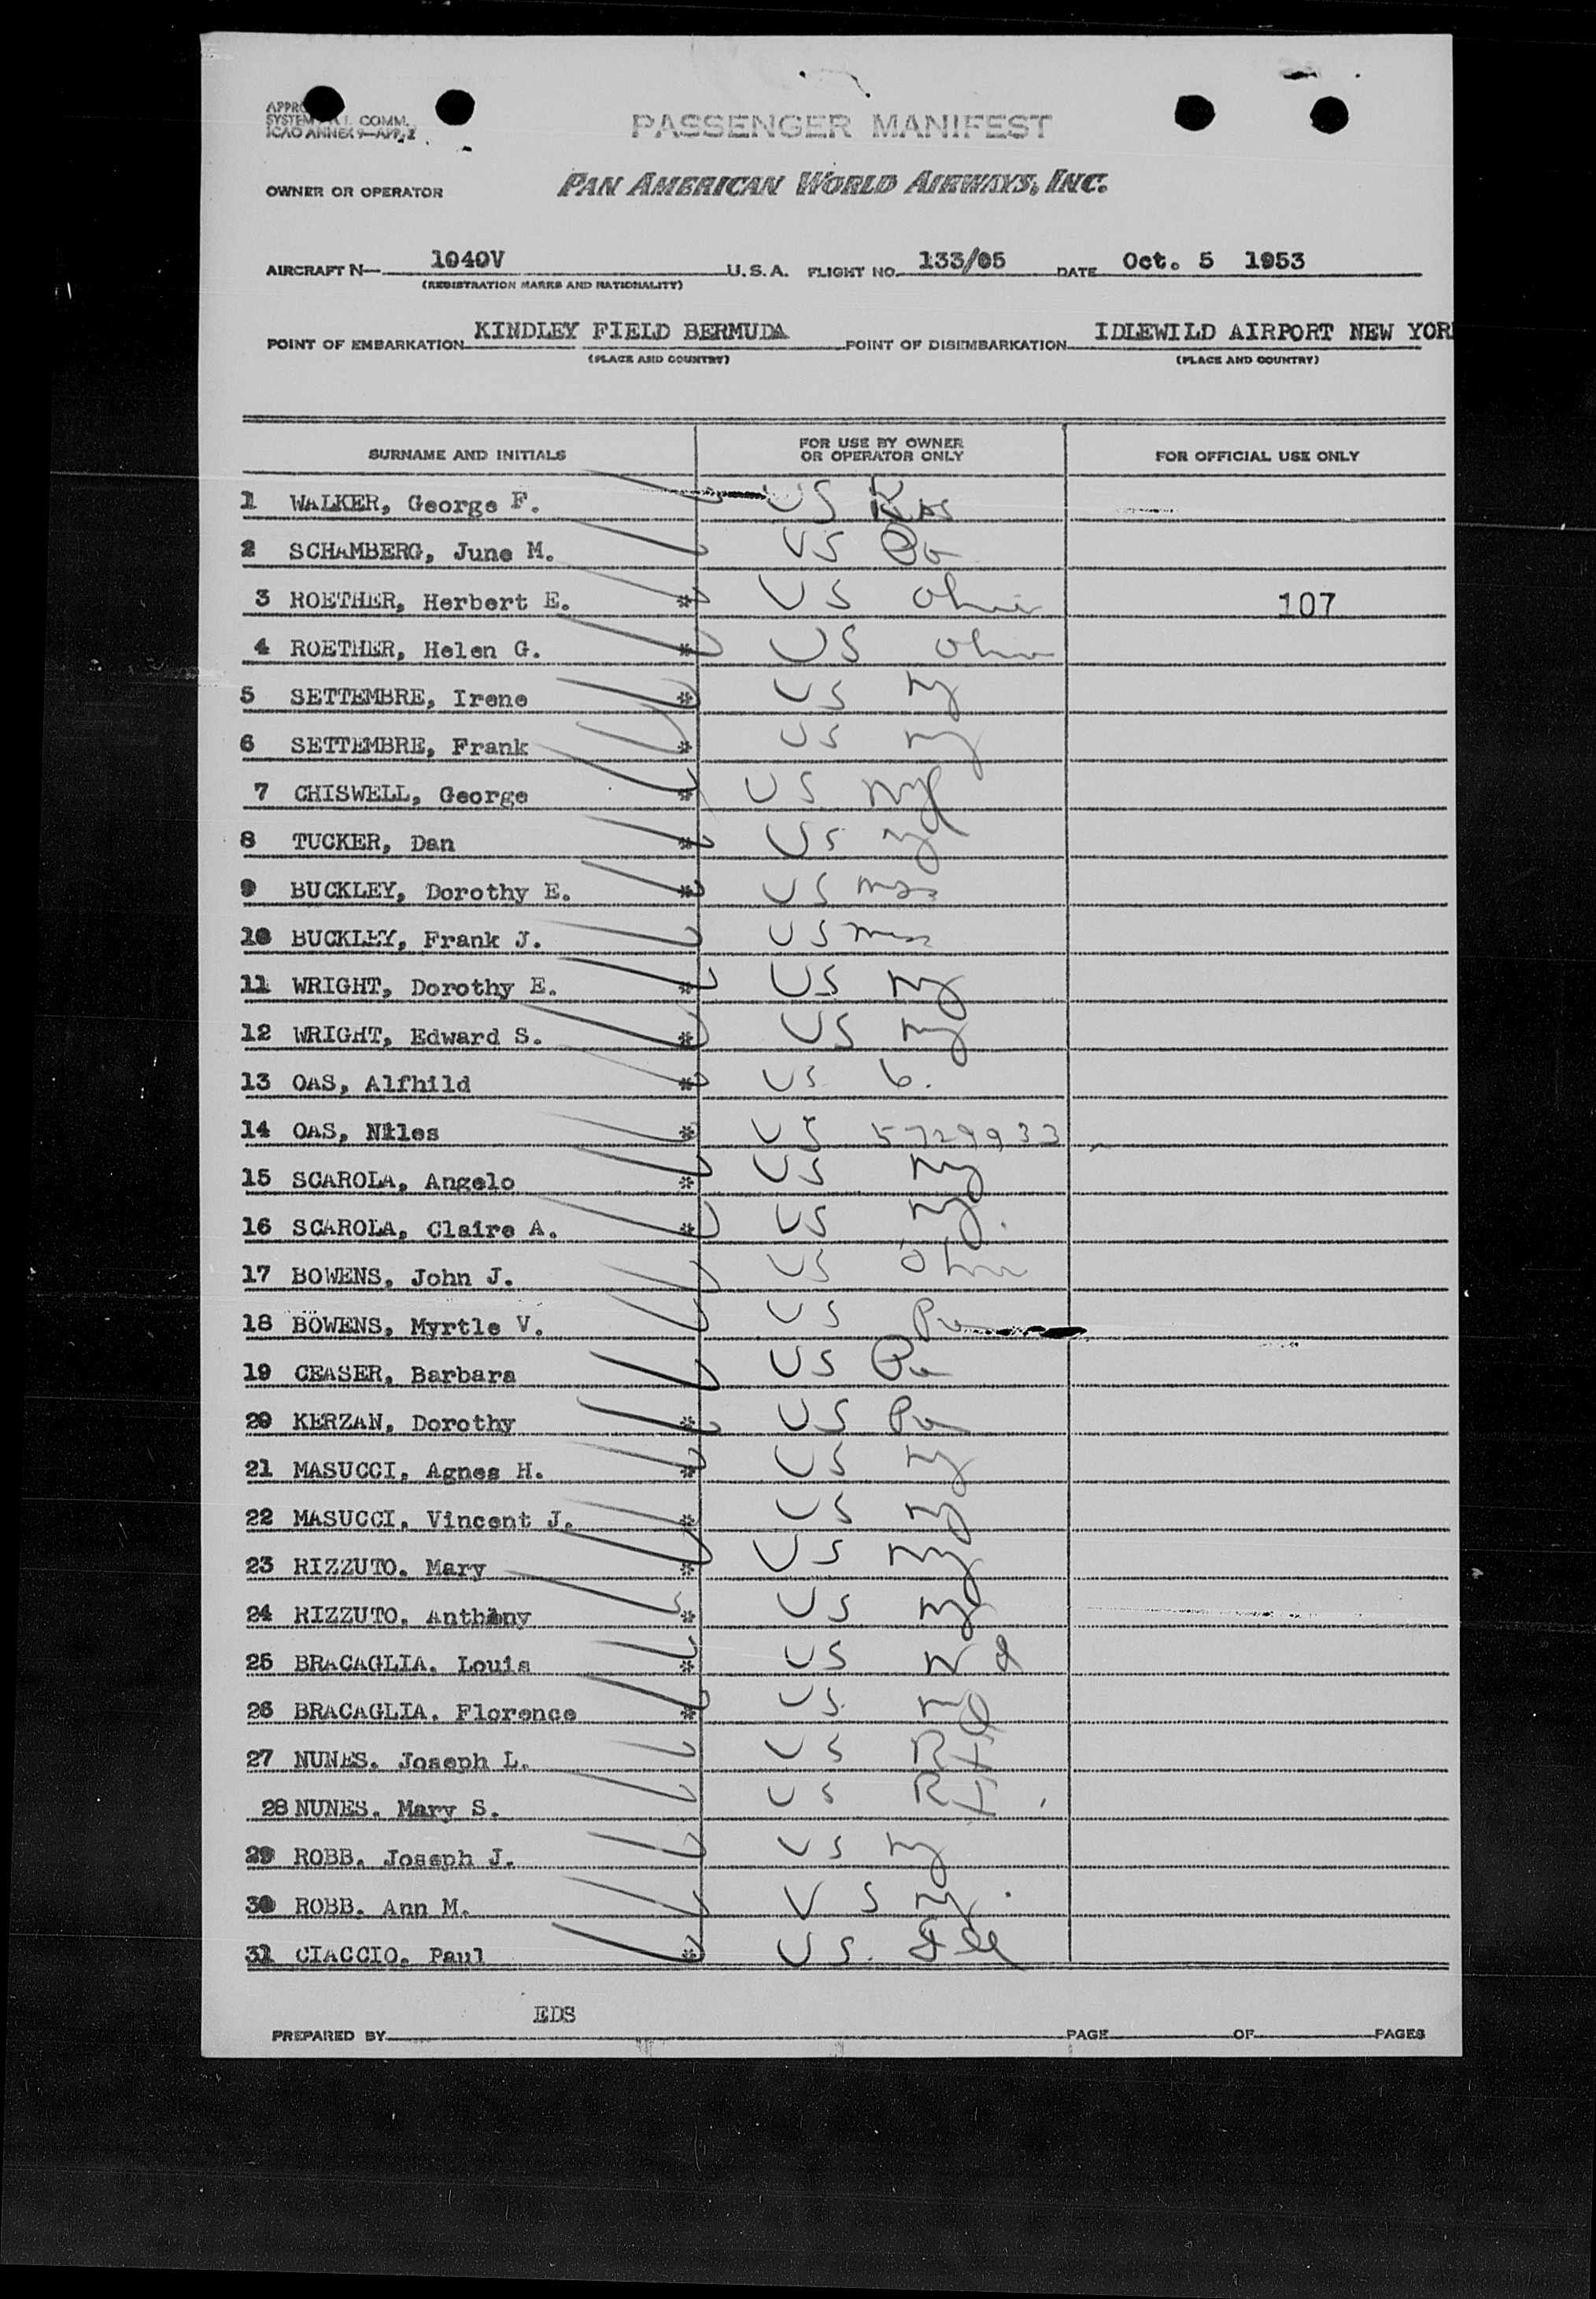 SYSTEM COMM.
ICAO ANNEX 9—APP. 2
PASSENGER MANIFEST
OWNER OR OPERATOR PAN AMERICAN WORLD AIRWAYS, INC.
AIRCRAFT N— 1040V U.S.A. FLIGHT NO. 133/05 DATE Oct. 5 1953
(REGISTRATION MARKS AND NATIONALITY)
POINT OF EMBARKATION KINDLEY FIELD BERMUDA POINT OF DISEMBARKATION IDLEWILD AIRPORT NEW YOR
(PLACE AND COUNTRY) (PLACE AND COUNTRY)
SURNAME AND INITIALS FOR USE BY OWNER OR OPERATOR ONLY FOR OFFICIAL USE ONLY
1 WALKER, George F. US
2 SCHAMBERG, June M. US Pa
3 ROETHER, Herbert E. * US Ohio 107
4 ROETHER, Helen G. * US Ohio
5 SETTEMBRE, Irene * US Ny
6 SETTEMBRE, Frank * US Ny
7 CHISWELL, George * US
8 TUCKER, Dan * US Ny
9 BUCKLEY, Dorothy E. * US Mass
10 BUCKLEY, Frank J. US Mass
11 WRIGHT, Dorothy E. * US Ny
12 WRIGHT, Edward S. * US Ny
13 OAS, Alfhild * US 6.
14 OAS, Niles * US 5729933
15 SCAROLA, Angelo * US Ny
16 SCAROLA, Claire A. * US Ny.
17 BOWENS, John J. US Ohio
18 BOWENS, Myrtle V. US Pa
19 CEASER, Barbara US Pa
20 KERZAN, Dorothy * US Pa
21 MASUCCI, Agnes H. * US Ny
22 MASUCCI, Vincent J. * US Ny
23 RIZZUTO. Mary * US Ny
24 RIZZUTO. Anthony * US Ny
25 BRACAGLIA. Louis * US
26 BRACAGLIA. Florence * US
27 NUNES. Joseph L. US RI
28 NUNES. Mary S. US RI
29 ROBB. Joseph J. US Ny
30 ROBB. Ann M. US Ny
31 CIACCIO. Paul * US. Ill
PREPARED BY EDS PAGE OF PAGES